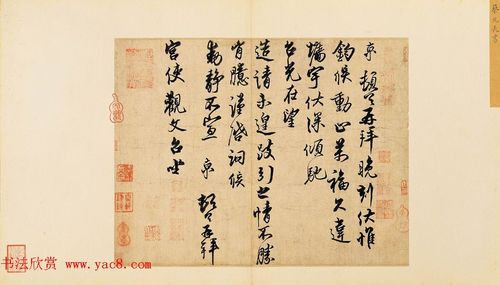 蔡元長書
京 頓首再拜晚刻伏惟
鈞候動止萬福久違
牆宇伏深傾馳
台光在望
造請未遑跂引之情不勝
胷臆謹啓詢候
動靜不宣 京 頓首再拜
宮使觀文台坐
书法欣赏
www.yac8.com